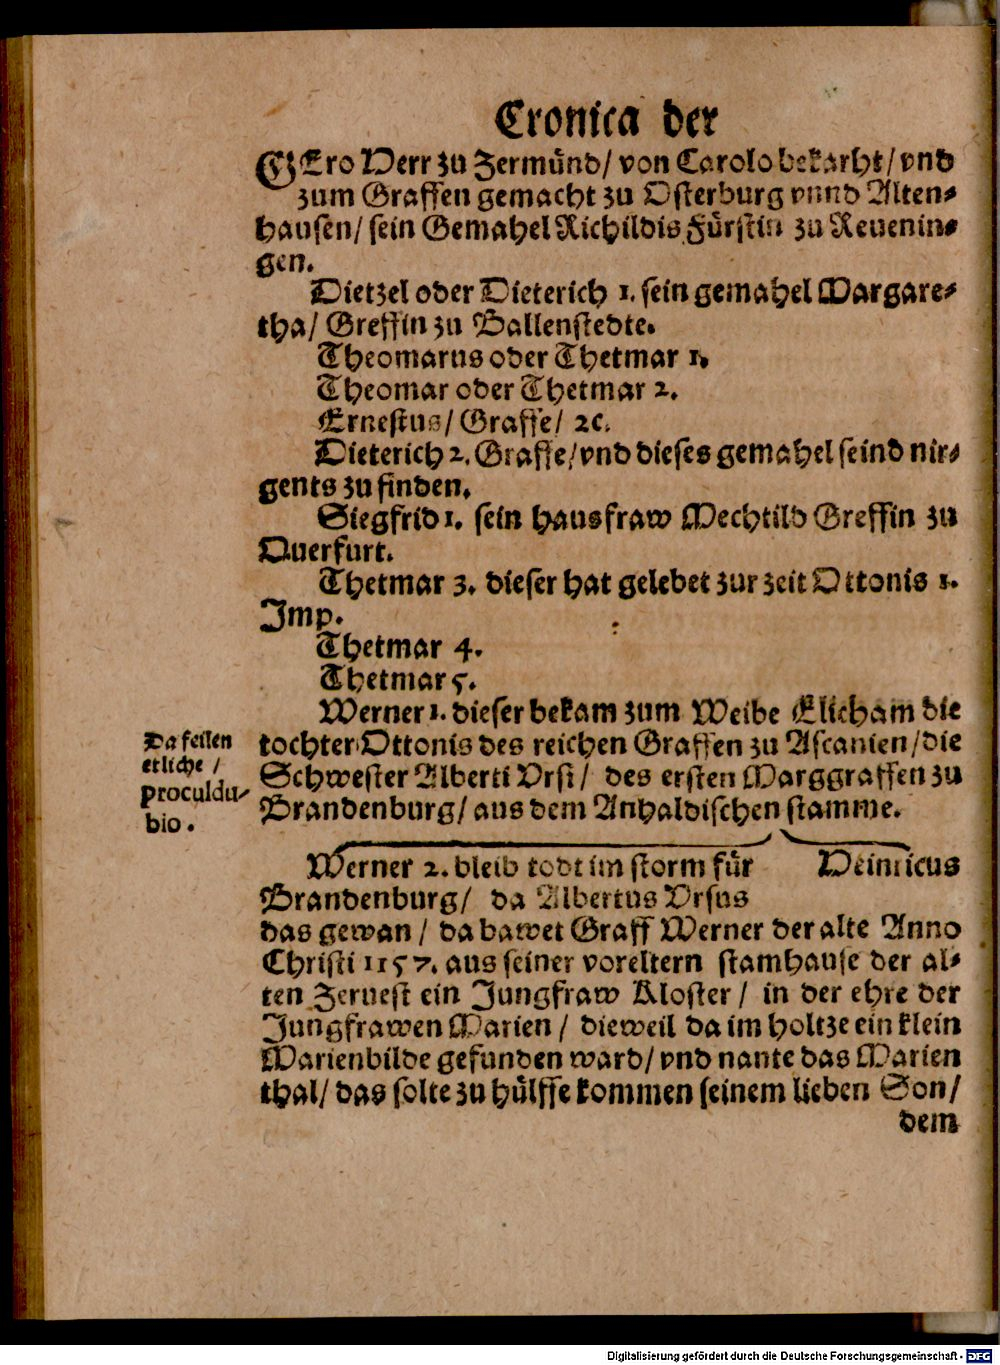 Cronica der
GEro Herr zu Zermünd/ von Carolo bekarht/ vnd
zum Graffen gemacht zu Osterburg vnnd Alten⸗
hausen/ sein Gemahel Richildis Fürstin zu Reuenin⸗
gen.
Dietzel oder Dieterich 1. sein gemahel Margare⸗
tha/ Greffin zu Ballenstedte.
Theomarus oder Thetmar 1.
Theomar oder Thetmar 2.
Ernestus/ Graffe/ ꝛc.
Dieterich 2. Graffe/ vnd dieses gemahel seind nir⸗
gents zu finden.
Siegfrid 1. sein hausfraw Mechtild Greffin zu
Querfurt.
Thetmar 3. dieser hat gelebet zur zeit Ottonis 1.
Imp.
Thetmar 4.
Thetmar 5.
Werner 1. dieser bekam zum Weibe Elicham die
tochter Ottonis des reichen Graffen zu Ascanien/ die
Schwester Alberti Vrsi/ des ersten Marggraffen zu
Brandenburg/ aus dem Anhaldischen stamme.
Da feilen
etliche /
proculdu⸗
bio.
Werner 2. bleib todt im storm für Heinricus
Brandenburg/ da Albertus Vrsus
das gewan / da bawet Graff Werner der alte Anno
Christi 1157. aus seiner voreltern stamhause der al⸗
ten Zeruest ein Jungfraw Kloster/ in der ehre der
Jungfrawen Marien / dieweil da im holtze ein klein
Marienbilde gefunden ward/ vnd nante das Marien
thal/ das solte zu hülffe kommen seinem lieben Son/
dem
Digitalisierung gefördert durch die Deutsche Forschungsgemeinschaft - DFG